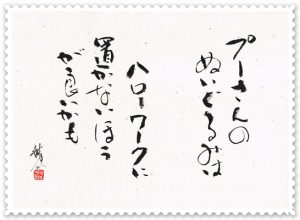 プーさんの
ぬいぐるみは
ハローワークに
置かないほう
が良いかも